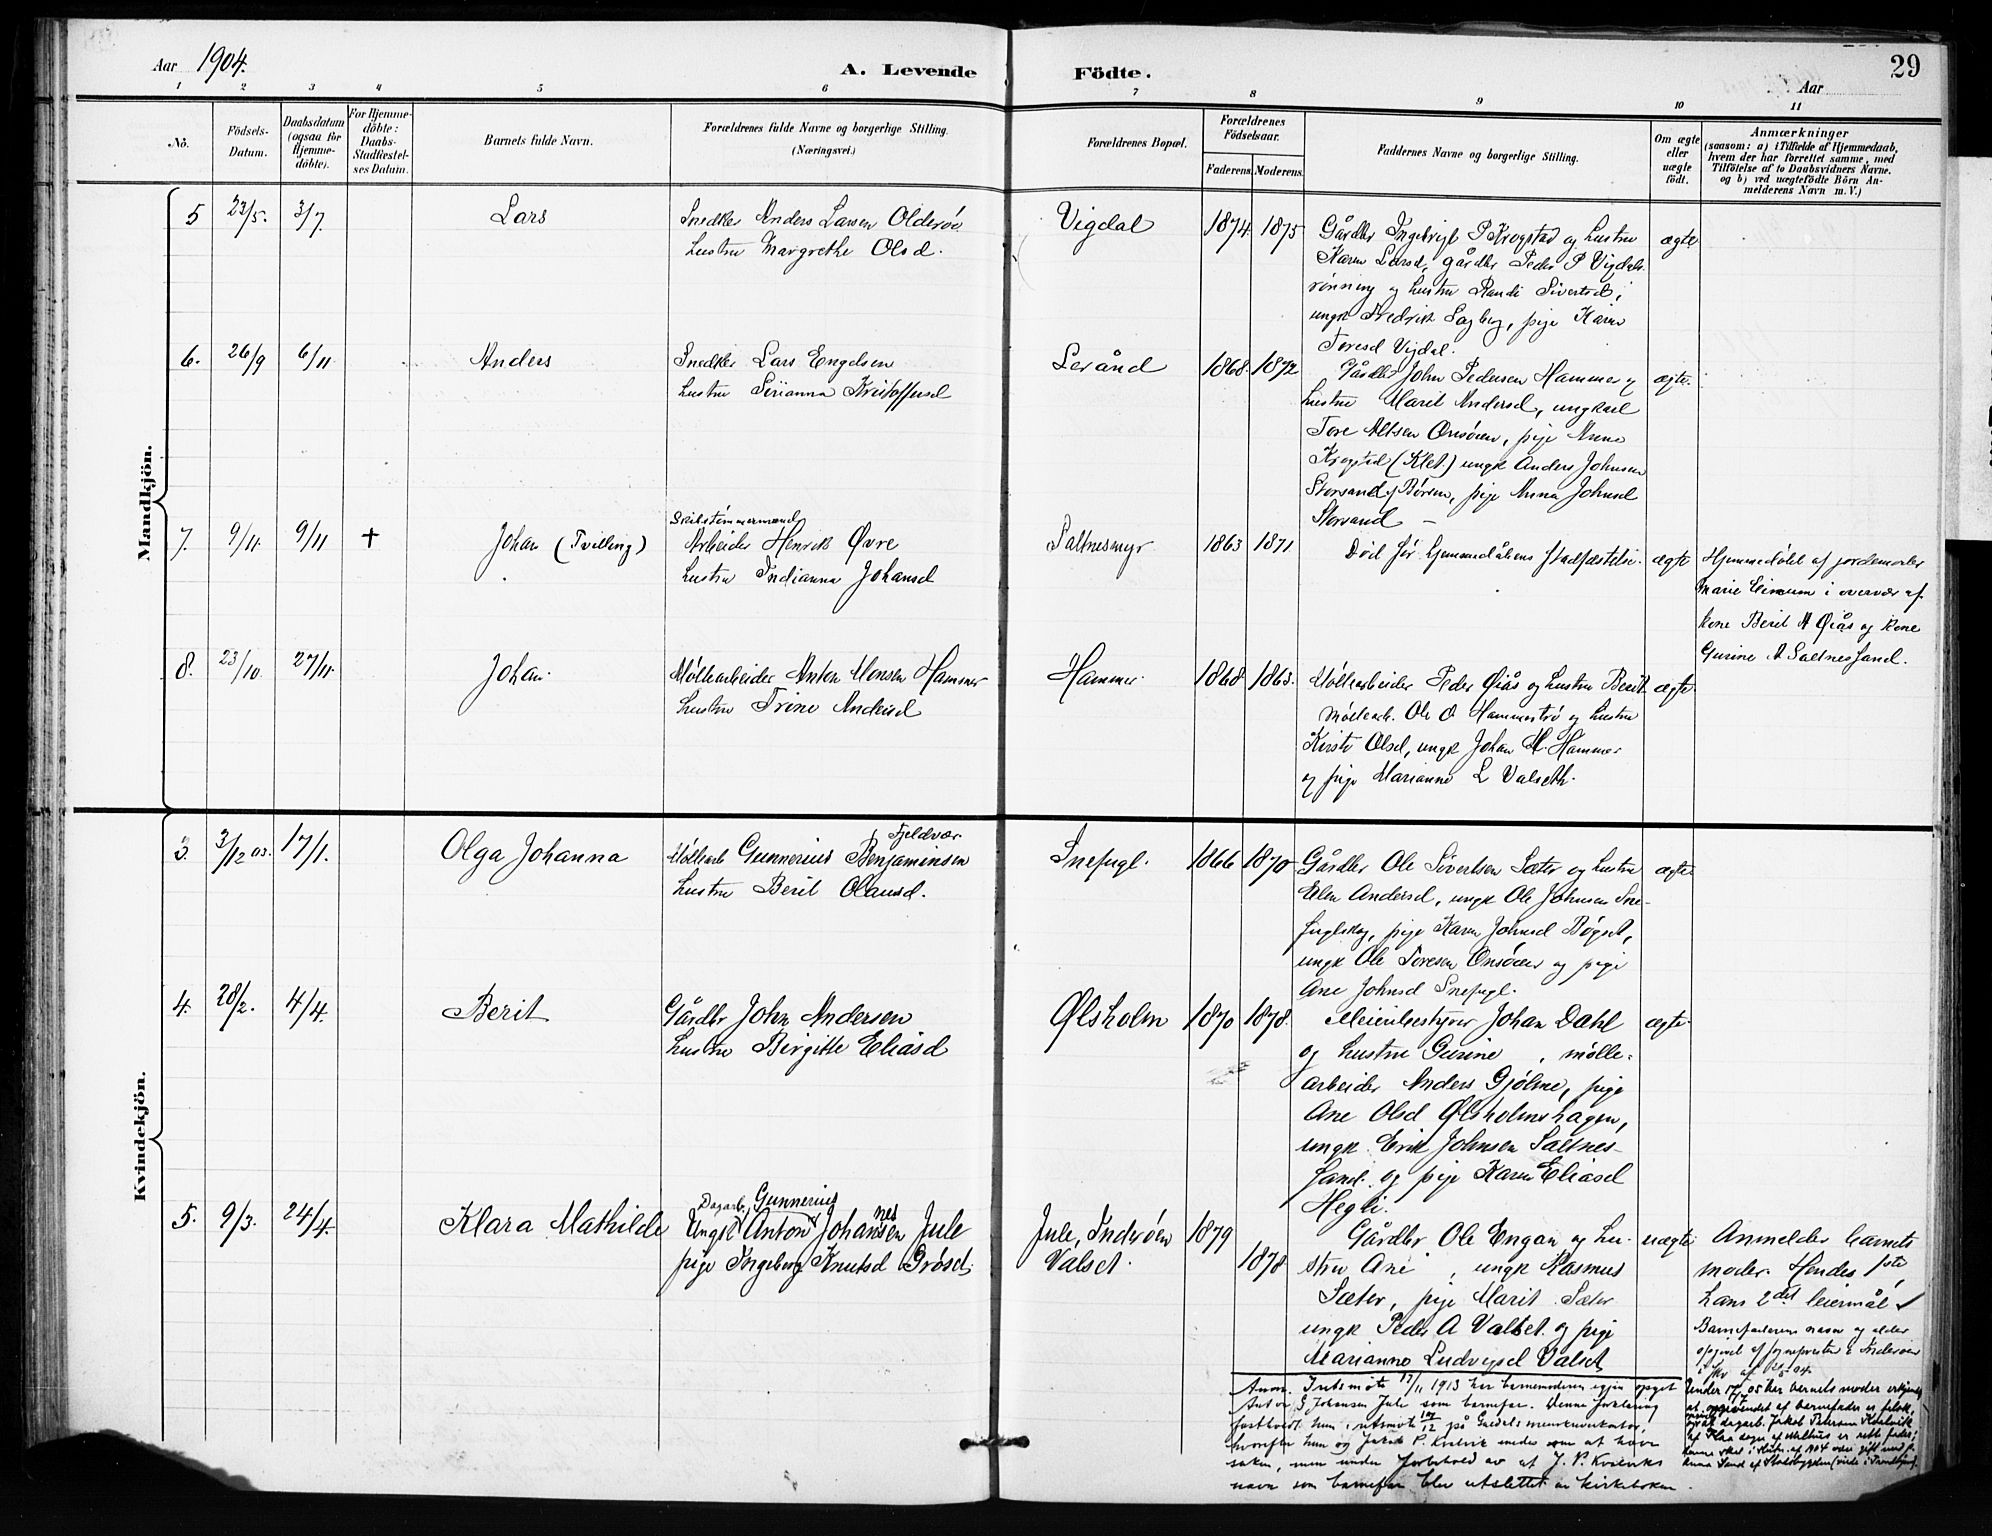 Aar 1904.
A. Levende Födte.
29
Aar
1 2 3 4 5 6 7 8 9 10 11
No.
Födsels-Datum.
Daabsdatum (ogsaa for Hjemme-döbte).
For Hjemme-döbte: Daabs-Stadfæstel-ses Datum.
Barnets fulde Navn.
Forældrenes fulde Navne og borgerlige Stilling. (Næringsvei.)
Forældrenes Bopæl.
Forældrenes Födselsaar.
Faderens. Moderens.
Faddernes Navne og borgerlige Stilling.
Om ægte eller uægte födt.
Anmærkninger
(saasom: a) i Tilfælde af Hjemmedaab,
hvem der har forrettet samme, med
Tilföielse af to Daabsvidners Navne.
og b) ved uægtefödte Börn An-
melderens Navn m. V.)
Mandkjön.
5 23/5. 3/7. Lars
Snedker Anders Larsen Olderöe
hustru Margrethe Olsd.
Vigdal 1874. 1875
Gårdbr Ingebrigt P Krogstad og hustru
Karen Larsd, gårdbr Peder P Vigdals
rönning og hustru Randi Sivertsd,
ungk Fredrik Sagberg, pige Karen
Toresd Vigdal.
ægte
6. 26/9 6/11 Anders
Snedker Lars Engelsen
hustru Sirianna Kristoffersd
Leránd 1868. 1872
Gårdbr John Pedersen Hammer og
hustru Marit Andersd, ungkarl
Tore Altsen Onsöien, pige Anne
Krogstad (Klet.) ungk Anders Johnsen
Storsand, Börsen, pige Anna Johnsd
Storsand –
ægte.
7. 9/11. 9/11 + Johan (Tvilling)
Skibstömmermand
Arbeider Henrik Øvre
hustru Indianna Johansd
Saltnesmyr 1863 1871
Död för hjemmedåbens stadfæstelse.
ægte
Hjemmedöbt af jordemoder
Marie Eimum i overvær af
kone Berit A Øiås og kone
Gurine A Saltnessand.
8. 23/10. 27/11. Johan.
Möllearbeider Anton Monsen Hammer
hustru Trine Andersd
Hammer. 1868 1863.
Möllearbeider Peder Øiås og hustru Berit.
Möllearb. Ole O Hammertrö og hustru
Kirsti Olsd, ungk Johan M. Hammer
og pige Marianne L Valseth.
ægte.
Kvindekjön.
3. 3/12 03. 17/1. Olga Johanna
Fjeldvær
Möllearb Gunnerius Benjaminsen
hustru Berit Olausd.
Snefugl. 1866 1870
Gårdbr Ole Sivertsen Sæter og hustru
Elen Andersd, ungk Ole Johnsen Sne-
fuglskog, pige Karen Johnsd Bögset,
ungk Ole Toresen Onsöien og pige
Ane Johnsd Snefugl.
ægte
4. 28/2. 4/4. Berit
Gårdbr John Andersen
hustru Birgitte Eliasd
Ølsholm 1870 1878.
Meieribestyrer Johan Dahl
og hustru Gurine , mölle-
arbeider Anders Gjölme, pige
Ane Olsd Ølsholmshagen,
ungk. Erik Johnsen Saltnes-
sand. og pige Karen Eliasd
Hegli.
ægte.
5. 9/3. 24/4. Klara Mathilde
Dagarb. Gunnerius
Ungk Anton Johansen nes Jule
pige Ingeborg Knutsd Gröset.
Jule, Inderöen 1879
Valset. 1878
Gårdbr Ole Engan og hu-
stru Ane , ungk Rasmus
Sæter, pige Marit Sæter
ungk Peder A Valset. og pige
Marianne Ludvigsd Valset
uægte
Anmelder barnets
moder. Hendes 1ste,
hans 2det leiermål
Barnefaderens navn og alder
opgivet af sognepresten i Inderöen
i skr af 20/5 04.
Under 17/7 05 har barnets moder erkjendt
at opgivendet af barnefader er falsk,
Anm. I retsmöte 17/11 1913 har barnemoderen igjen opgit
Anton G Johansen Jule som barnefar. Denne forklaring
fastholdt hun i retsmöte 10/12 på
hvorefter hun og Jakob P. Kvalvik
saken, men under forbehold av at J. P. Kvalviks
navn som barnefar blev utslettet av kirkeboken.